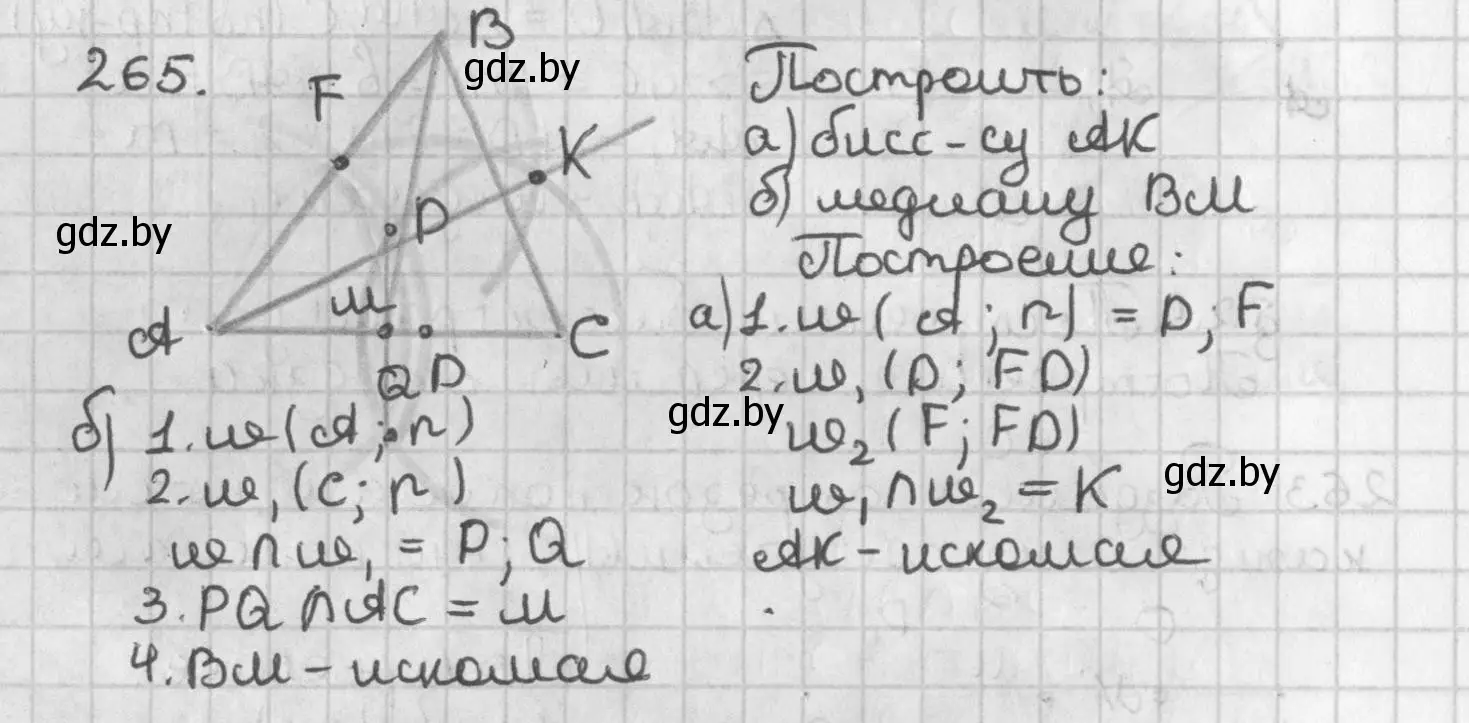 265.
B
F
K
P
A
M
C
Q D
gdz.by
gdz.by
gdz.by
gdz.by
Построить:
а) бисс-су AK
б) медиану BM
Построение:
а) 1. ω(A; r) = D; F
2. ω₁(D; FD)
ω₂(F; FD)
ω₁∩ω₂ = K
AK - искомая
б) 1. ω(A; r)
2. ω₁(C; r)
ω∩ω₁ = P; Q
3. PQ∩AC = M
4. BM - искомая